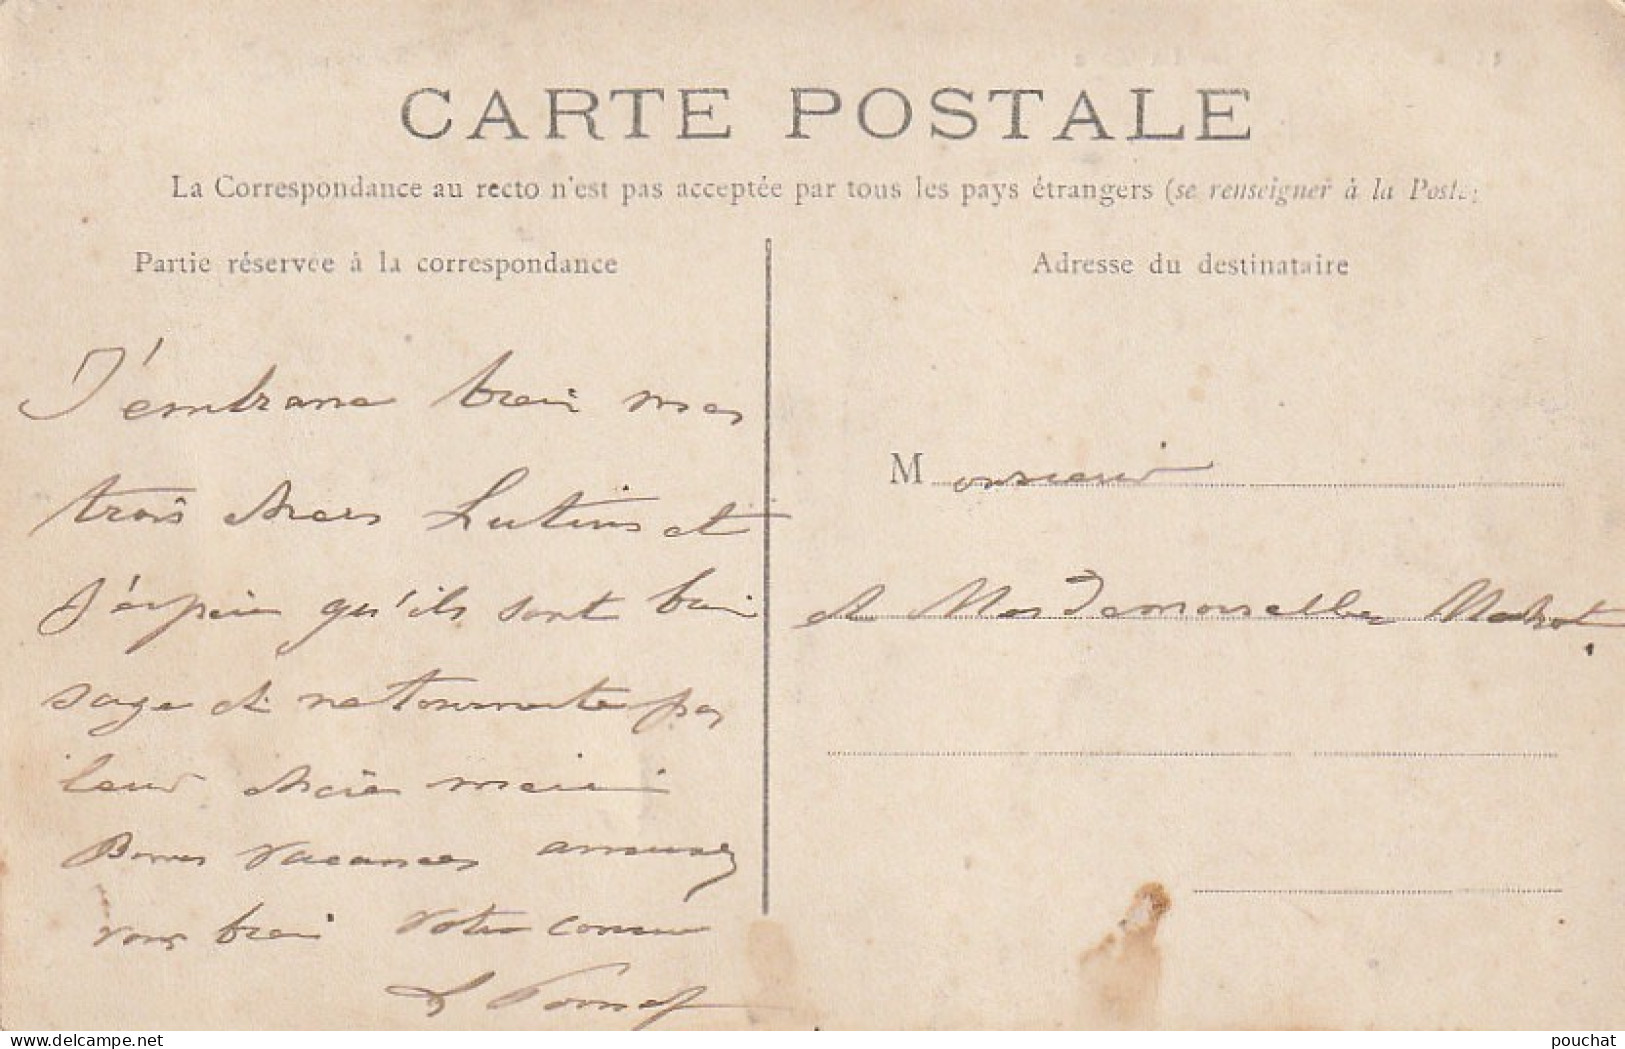 CARTE POSTALE
La Correspondance au recto n'est pas acceptée par tous les pays étrangers (se renseigner à la Poste)
Partie réservée à la correspondance
Adresse du destinataire
J'embrasse bien mes
trois chers Lutins et
j'espère qu'ils sont bien
sage et ne tourmente pas
leur chère
Bonnes vacances amusez
vous bien votre cousin
Monsieur
et Mesdemoiselles
delcampe.net
pouchat